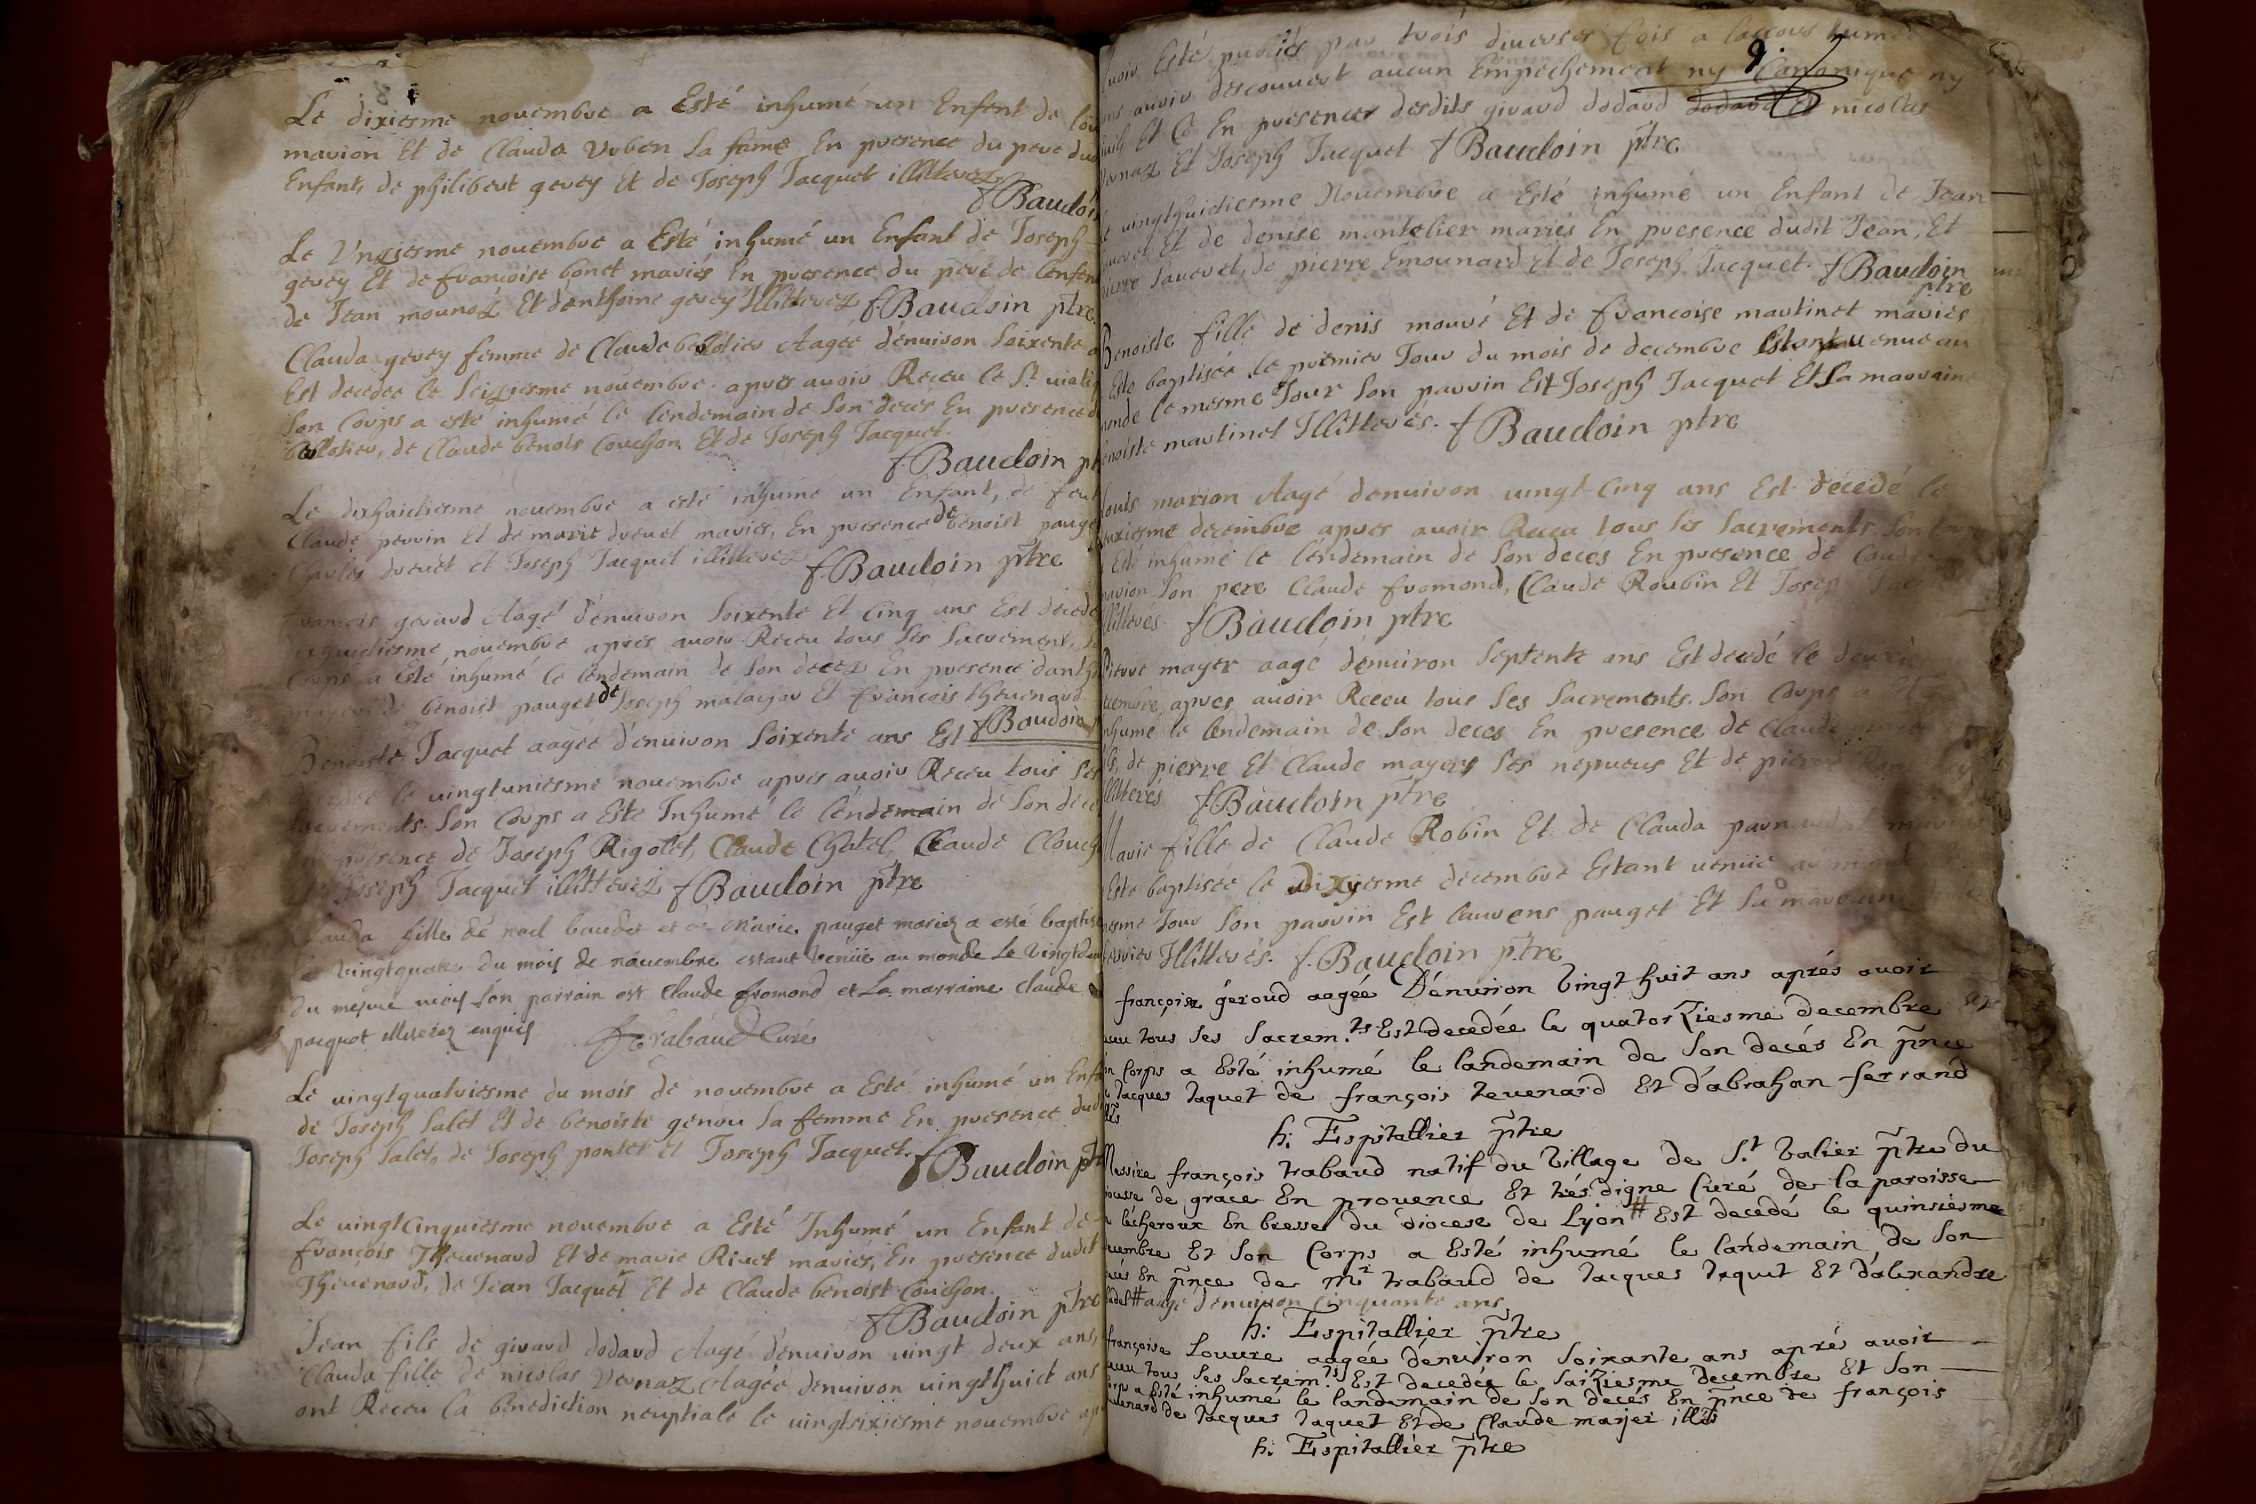 Le dixiesme nouembre a Esté inhumé un Enfent de
marion Et de Clauda Vuben sa fame En presence du pere
Enfant, de philibert gevey Et de Joseph Jacquet illitterez
f Baudoin
Le Vnziesme nouembre a Esté inhumé un Enfant de Joseph
gevey Et de francoise bonet mariés En presence du pere de lenfent
de Jean mounoz Et danthoine gevey Illitterez f Baudoin ptre
Clauda gevey femme de Claude Aagée denuiron Soixente
Est decedée le Seiziesme nouembre apres auoir Receu le St.
Son Corps a esté inhumé le lendemain de Son deces En presence
de Claude benois Couchon Et de Joseph Jacquet.
f Baudoin
Le dixhuictiesme nouembre a esté inhumé un Enfant, de feu
Claude perrin Et de marie dreuet mariés, En presence de benoist pauget
Charles dreuet et Joseph Jacquet illitterez f Baudoin ptre
francois gerard Aagé denuiron Soixente Et Cinq ans Est decedé
nouembre apres auoir Receu tous Ses Sacrement,
Corps a Esté inhumé le lendemain de Son decez En presence
de benoist pauget de Joseph et francois theuenard
f Baudoin
Benoiste Jacquet aagée denuiron Soixente ans Est
le uingtuniesme nouembre apres auoir Receu tous Ses
Son Corps a Esté Inhumé le lendemain de Son
presence de Joseph Rigollet, Claude Chatel, Claude
Joseph Jacquet illitterez f Baudoin ptre
Clauda fille de noel baudet et de Marie pauget mariez a esté
Le Vingtquatre du mois de nouembre estant Venüe au monde le
du mesme mois Son parrain est Claude fromond et La marraine Claude
pacquot enquis Trabaud Curé
Le uingtquatriesme du mois de nouembre a Esté inhumé un
de Joseph Salet Et de benoiste genou Sa femme En presence
Joseph Salet, de Joseph pontet Et Joseph Jacquet. f Baudoin
Le uingtcinquiesme nouembre a Esté Inhumé un Enfant de
françois Theuenard Et de marie Riuet mariés, En presence dudit
Theuenard, de Jean Jacquet Et de Claude benoist Couchon.
f Baudoin ptre
Jean fils de girard dodard Aagé denuiron uingt deux ans,
Clauda fille de nicolas Vernaz Aagée denuiron uingthuict ans
ont Receu la benediction neuptiale le uingtsixiesme nouembre
9.
auoir Esté publiés par trois diuerses fois a
auoir descouuert aucun Empechement ny Canonique ny
Et Ce En presences desdits girard dodard dodard Et nicolas
Vernaz Et Joseph Jacquet f Baudoin ptre
uingthuictiesme Nouembre a Esté inhumé un Enfant de Jean
Et de denise mantelier mariés En presence dudit Jean, Et
pierre de pierre Emounard Et de Joseph Jacquet. f Baudoin
ptre
Benoiste fille de denis mouré Et de francoise martinet mariés
Esté baptisée le premier Jour du mois de decembre Estant uenue au
monde le mesme Jour Son parrin Est Joseph Jacquet Et Sa marraine
benoiste martinet Illitterés. f Baudoin ptre
Louis marion Aagé denuiron uingt-Cinq ans Est decedé le
decembre apres auoir Receu tous Ses Sacrements. Son
Esté inhumé le lendemain de Son deces En presence de
marion Son pere Claude fromond, Claude Roubin Et Joseph
Illitterés f Baudoin ptre
Pierre mayer aagé denuiron Septente ans Est decedé le
decembre apres auoir Receu tous Ses Sacrements. Son Corps a
inhumé le lendemain de Son deces En presence de Claude
de pierre Et Claude mayers Ses nepueus Et de
Illiterés f Baudoin ptre
Marie fille de Claude Robin Et de Clauda
Esté baptisée le Dixiesme decembre Estant uenüe au monde
mesme Jour Son parrin Est laurens pauget Et Sa
Illitterés. f Baudoin ptre
françoise géroud aagée D'énuiron Vingt huit ans aprés auoir
receu tous ses Sacrem.ts Est decedée le quatorziesme decembre Et
Son Corps a Esté inhumé le landemain de son decés En pnce
de Jacques Jaquet de françois teuenard Et d'abrahan ferrand
h: Espitallier ptre
Messire françois trabaud natif du Village de S.t Valier ptre du
diocesse de grace En prouence Et trés digne Curé de la paroisse
lécheroux En bresse du diocese de Lyon # Est decedé le quinsiesme
decembre Et son Corps a Esté inhumé le landemain de son
decés En pnce de Mr trabaud de Jacques Jaquet Et d'alexandre
# aagé denuiron Cinquante ans
h: Espitallier ptre
françoise Louure aagée dénuiron Soixante ans aprés auoir
receu tous ses Sacrem.ts Est decedée le saiziesme decembre Et son
Corps a Esté inhumé le landemain de son decés En pnce de françois
teuenard de Jacques Jaquet Et de Claude marjer
h: Espitallier ptre